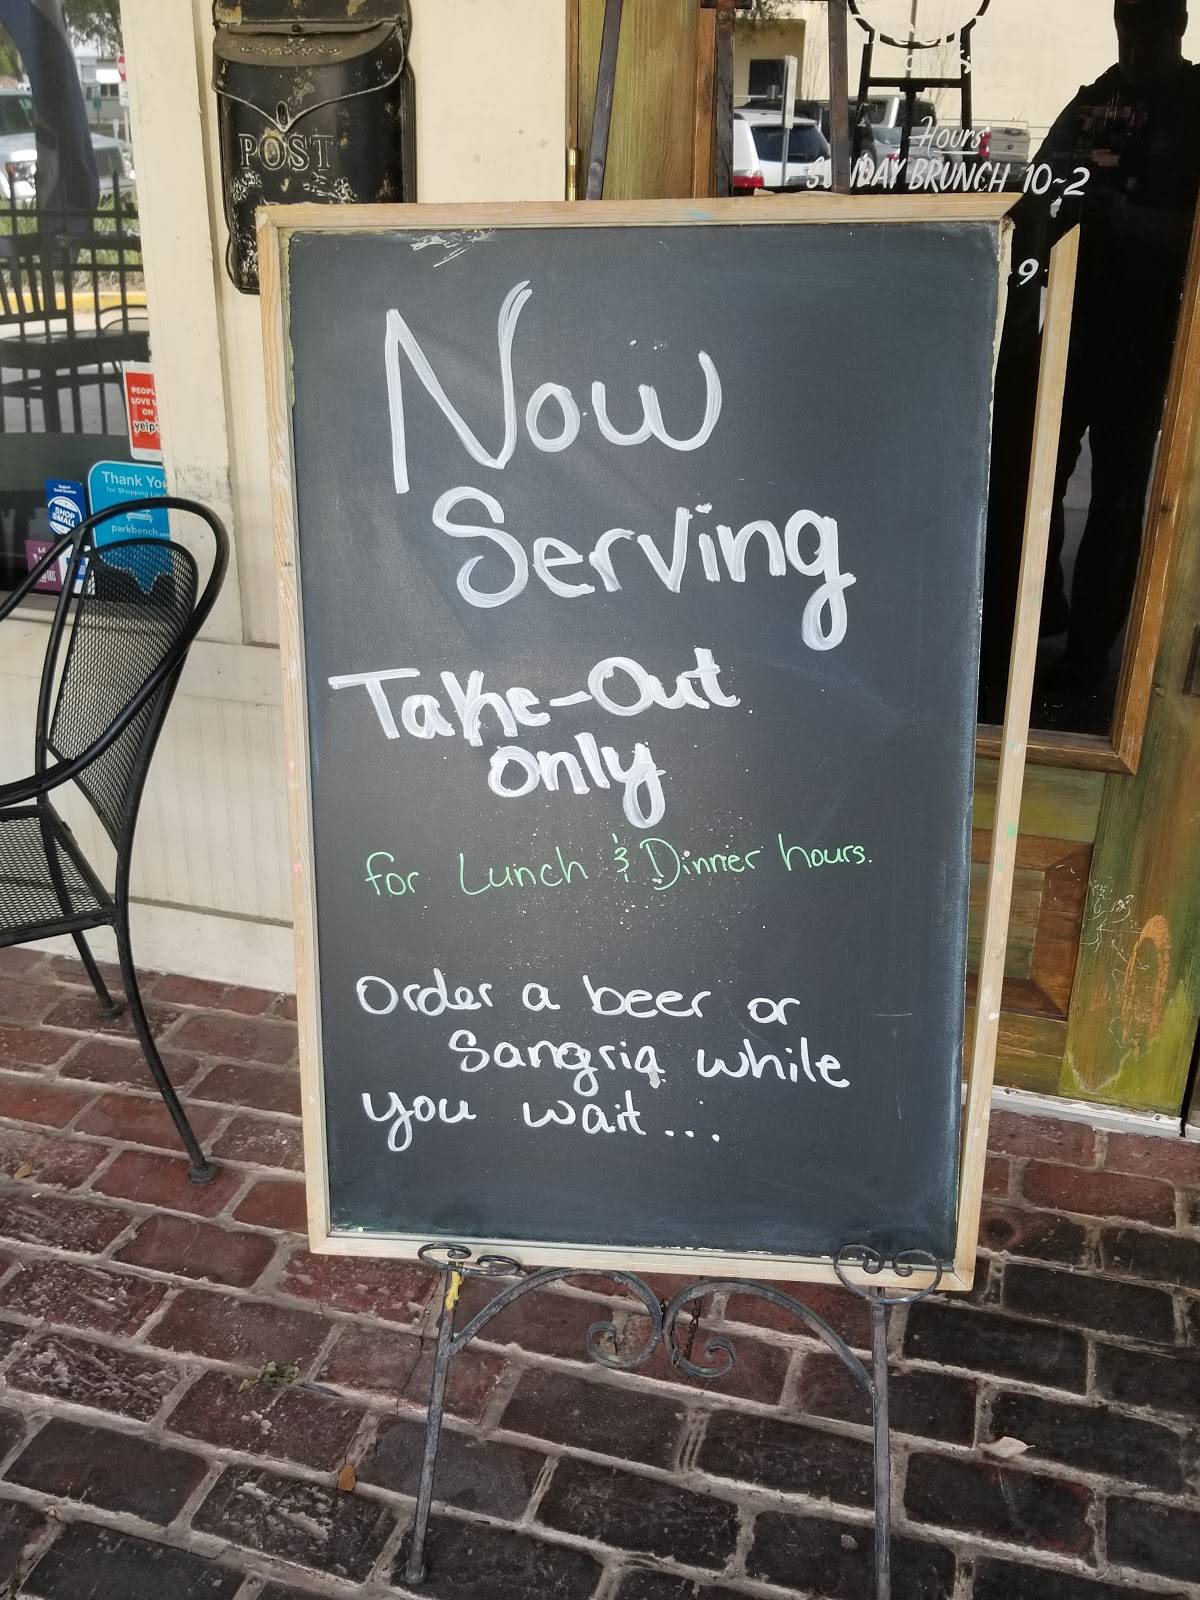 POST
Hours
SUNDAY BRUNCH 10~2
9
Now
Serving
Take-Out
only
for Lunch & Dinner hours.
Order a beer or
Sangria while
you wait...
PEOPL
LOVE
ON
yelp
Thank You
for Shopping Local
parkbench.com
SHOP
SMALL